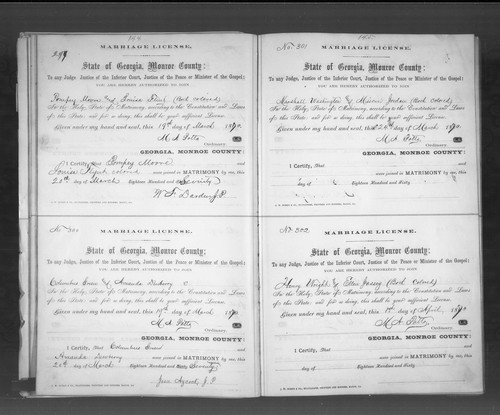 299
MARRIAGE LICENSE.
State of Georgia, Monroe County:
To any Judge, Justice of the Inferior Court, Justice of the Peace or Minister of the Gospel:
YOU ARE HEREBY AUTHORIZED TO JOIN
Pompey Moore & Louisa (Both colored)
In the Holy State of Matrimony, according to the Constitution and Laws
of this State, and for so doing, this shall be your sufficient License.
Given under my hand and seal, this 19th day of March 1870.
M. A. Potts
Ordinary.
GEORGIA, MONROE COUNTY:
I Certify, That Pompey Moore
Louisa colored were joined in MATRIMONY by me, this
20th day of March Eighteen Hundred and Seventy
J.P.
No 300
MARRIAGE LICENSE.
State of Georgia, Monroe County:
To any Judge, Justice of the Inferior Court, Justice of the Peace or Minister of the Gospel:
YOU ARE HEREBY AUTHORIZED TO JOIN
Columbus & Amanda
In the Holy State of Matrimony, according to the Constitution and Laws
of this State, and for so doing, this shall be your sufficient License.
Given under my hand and seal, this 19th day of March 1870.
M. A. Potts
Ordinary.
GEORGIA, MONROE COUNTY:
I Certify, That Columbus
Amanda were joined in MATRIMONY by me, this
20th day of March Eighteen Hundred and Seventy
J. P.
No 301
MARRIAGE LICENSE.
State of Georgia, Monroe County:
To any Judge, Justice of the Inferior Court, Justice of the Peace or Minister of the Gospel:
YOU ARE HEREBY AUTHORIZED TO JOIN
Marshall Washington & Jordan (Both Colored)
In the Holy State of Matrimony, according to the Constitution and Laws
of this State, and for so doing, this shall be your sufficient License.
Given under my hand and seal, this 24th day of March 1870.
M. A. Potts
Ordinary.
GEORGIA, MONROE COUNTY:
I Certify, That
were joined in MATRIMONY by me, this
day of Eighteen Hundred and Sixty
No 302
MARRIAGE LICENSE.
State of Georgia, Monroe County:
To any Judge, Justice of the Inferior Court, Justice of the Peace or Minister of the Gospel:
YOU ARE HEREBY AUTHORIZED TO JOIN
Henry Wright & (Both Colored)
In the Holy State of Matrimony, according to the Constitution and Laws
of this State, and for so doing, this shall be your sufficient License.
Given under my hand and seal, this 1st day of April 1870.
M. A. Potts
Ordinary.
GEORGIA, MONROE COUNTY:
I Certify, That
were joined in MATRIMONY by me, this
day of Eighteen Hundred and Sixty